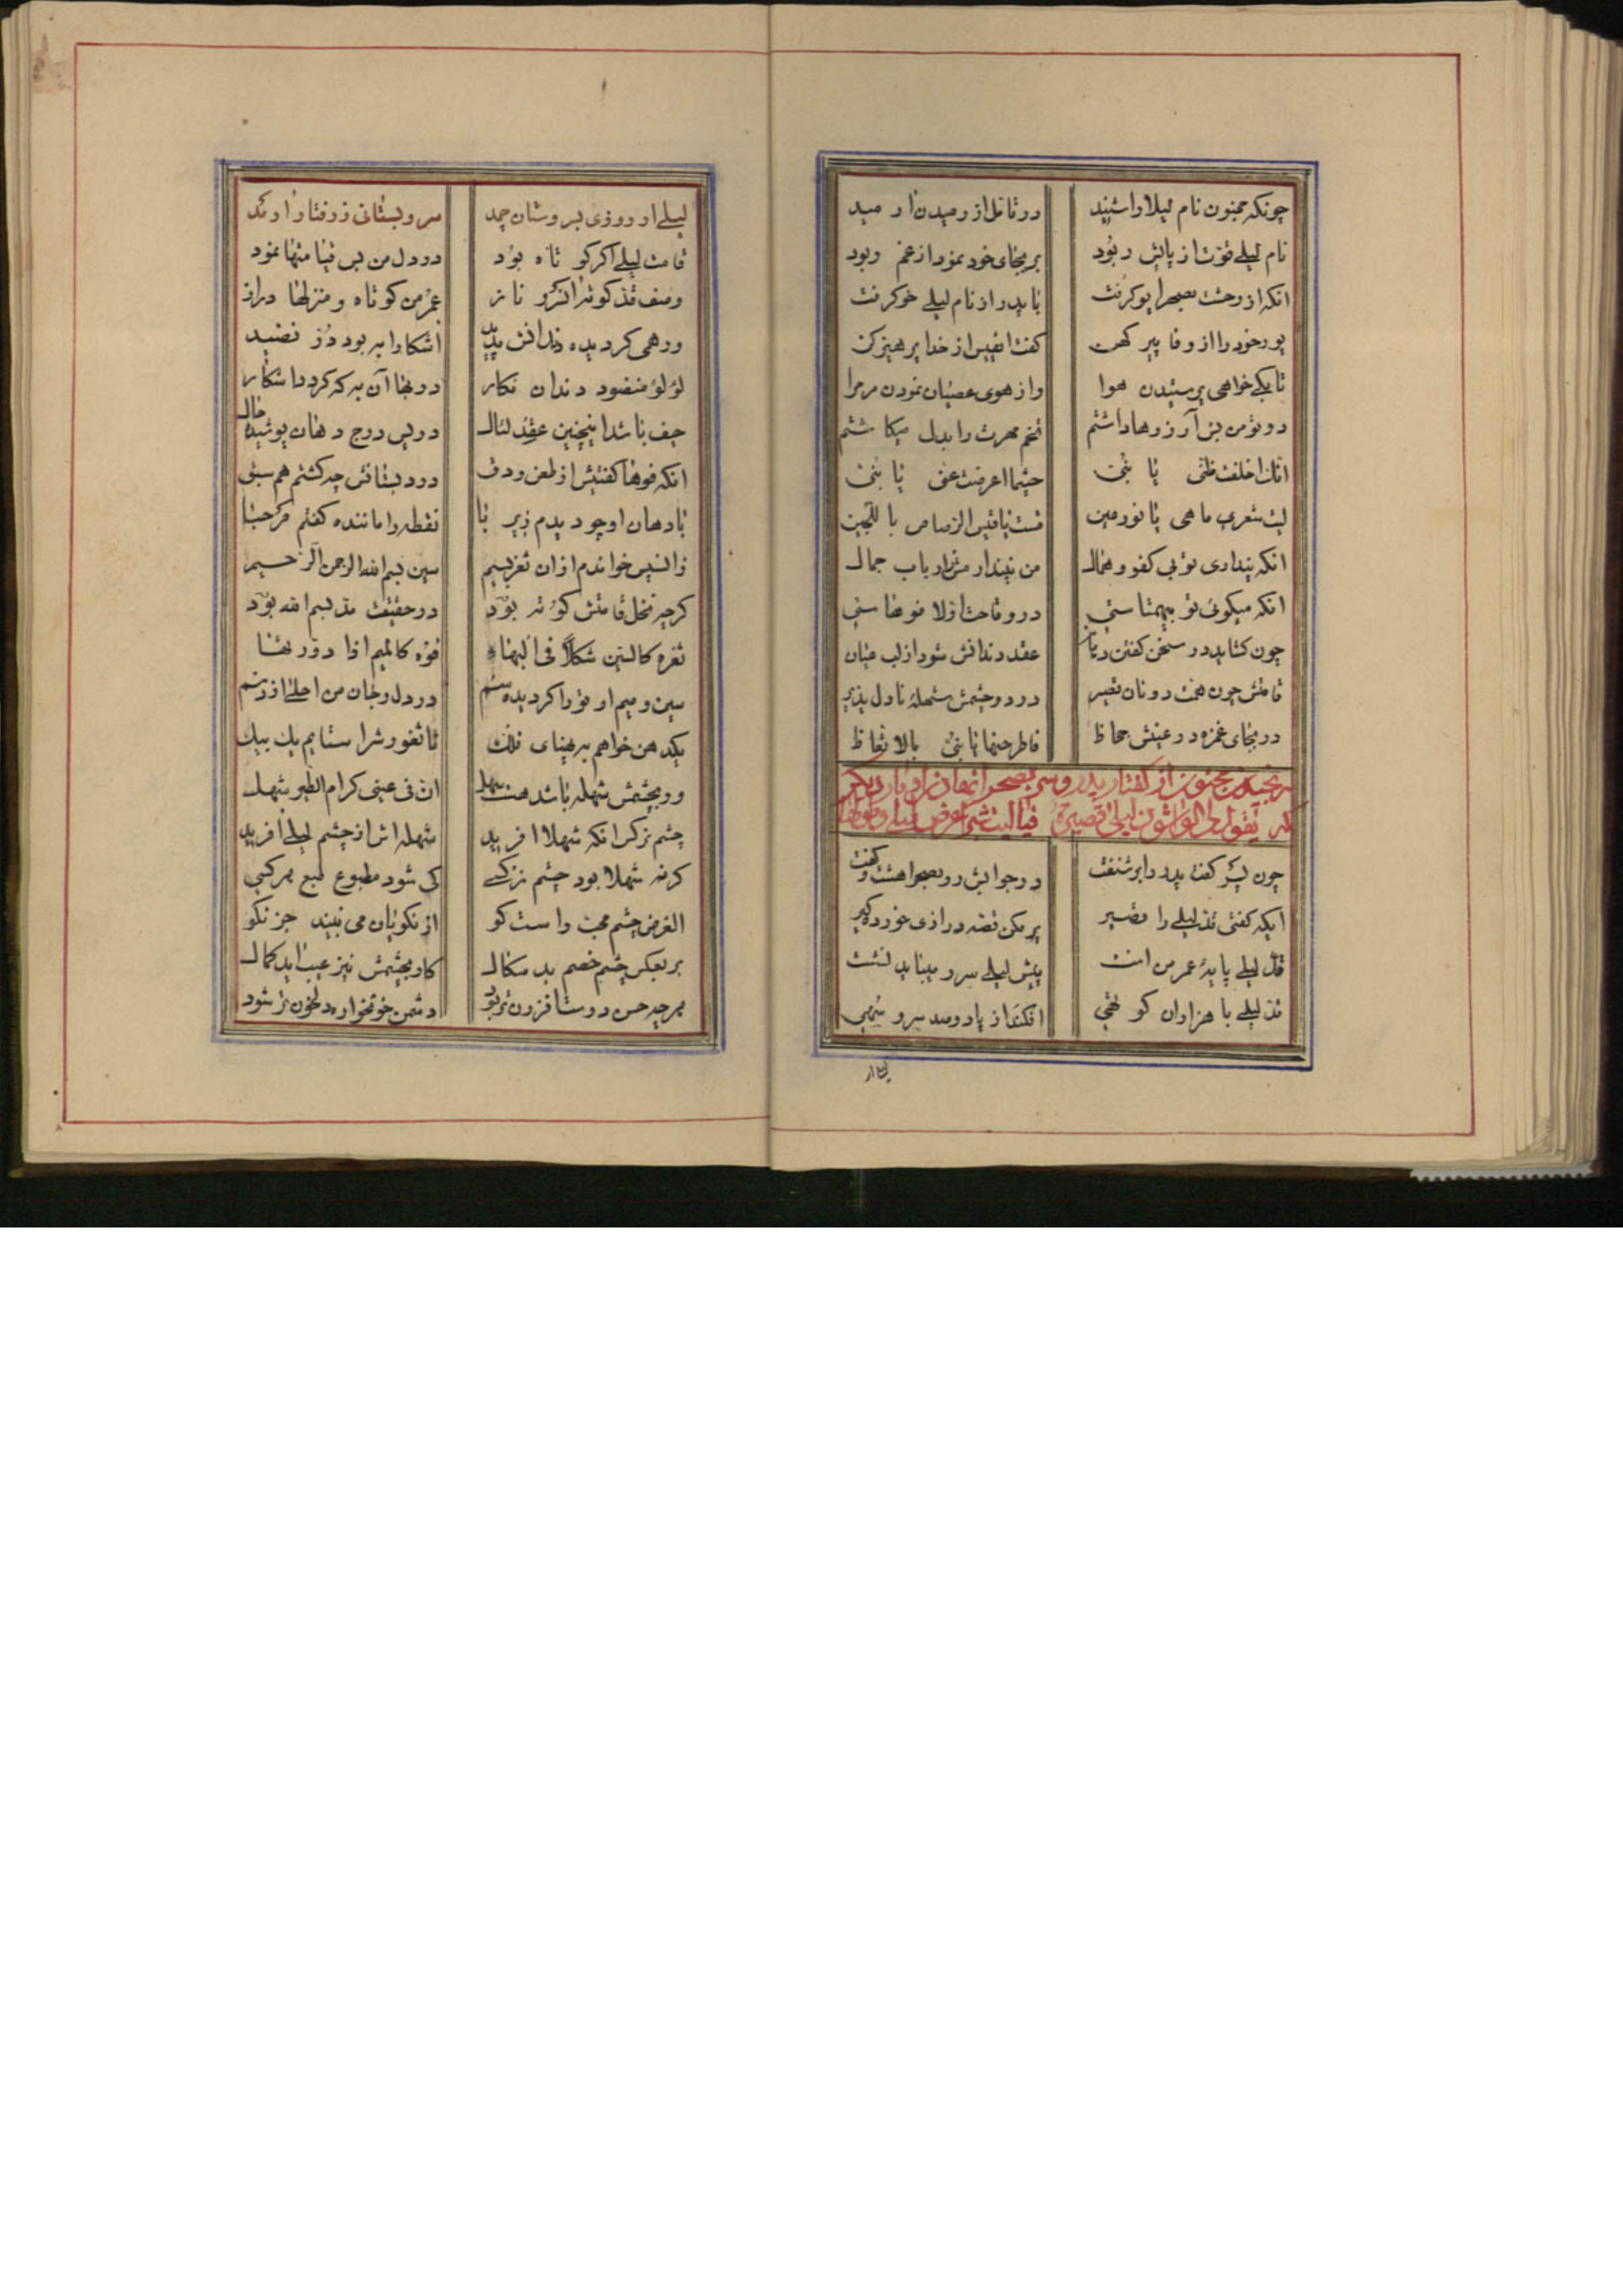 چونکه مجنون نام لیلا را شنید در تامل از رمیدن ار مید
نام لیلے قوت از پایش ربود بر بجای خود نمود از غم ربود
انکه از وحشت بصحرا پو کرفت با پدر از نام لیلے خو کرفت
پور خود را از وفا پیر کهن کفت ای قیس از خدا پرهیز کن
تا بکے خواهی پرستیدن هوا واز هوی عصیان نمودن مر مرا
در تو من بس آرزوها داشتم تخم مهرت را بدل میکاشتم
خلفت ظنی یا بنی حیثما اعرضت عنی یا بنی
لیت شعری ما هی یا نور عین قست یا قیس الرصاص با للجین
انکه پنداری تو بی کفو و همال من نپندارمش از ارباب جمال
انکه میکوئی تو بیهمتاستی در وقاحت اولا فوهاستی
چون کشاید در سخن کفتن زبان عقد دندانش شود از لب عیان
قامتش چون همت دونان قصیر در دو چشمش شهلهٔ نادل پذیر
در بجای غمزه در عینش جحاظ فاطرحنها یا بنی بالا تعاظ
رنجیدن مجنون از کفتار پدر و سر بصحرا نهادن او بار دیکر
که یقول لی الواشون لیلی قصیرة فیا لیت شبرا عرض لیلی وطولها
چون پسر کفت پدر را بر شنفت در جوابش رو بصحرا هشت و کفت
ایکه کفتی قد لیلے را قصیر پر مکن قصه درازی خورده کیر
قد لیلے پایهٔ عمر من است پیش لیلے سرو میباید نشست
قد لیلے با هزاران کوتهی افکند از پا دو صد سرو سهی
لیلے ار روزی بسروستان چمد سرو بستانی ز رفتار اوفتد
قامت لیلے اکر کوتاه بود در دل من بس قیامتها نمود
وصف قد کوته ان سرو ناز عمر من کوتاه و منزلها دراز
ورهمی کردیده دندانش پدید اشکارا به بود در نضید
لؤلؤ منضود دندان نکار در بها آن به که کردد اشکار
حیف باشد اینچنین عقد لئال در پس درج دهان پوشیده حال
انکه فوها کفتیش از طعن و دق در دبستانش چه کشتم هم سبق
با دهان او چو دیدم زیر با نقطه را ماننده کفتم مرحبا
زالسپس خواندم از ان ثغر بسیم سین بسم الله الرحمن الرحیم
کرچه نخل قامتش کوته بود در حقیقت مد بسم الله بود
ثغره کالسین شکلاً فی البهاء فوه کالمیم اذا دورتها
سین و میم او تو را کردیده سم در دل و جان من احلی از
یکدهن خواهم به پهنای فلک تا ثغورش را ستایم یک بیک
ور بچشمش شهله باشد هست سهل ان فی عینی کرام الطیر شهل
چشم نرکس انکه شهلا افرید شهله اش از چشم لیلے افرید
کرنه شهلا بود چشم نرکسے کی شود مطبوع طبع هر کسی
الغرض چشم محبت راست کو از نکویان می نبیند جز نکو
بر بعکس چشم خصم بد سکال کار بچشمش نیز عیب اید کمال
هر چه حسن دوست افزون تر بود دشمن خونخواره دلخون تر شود